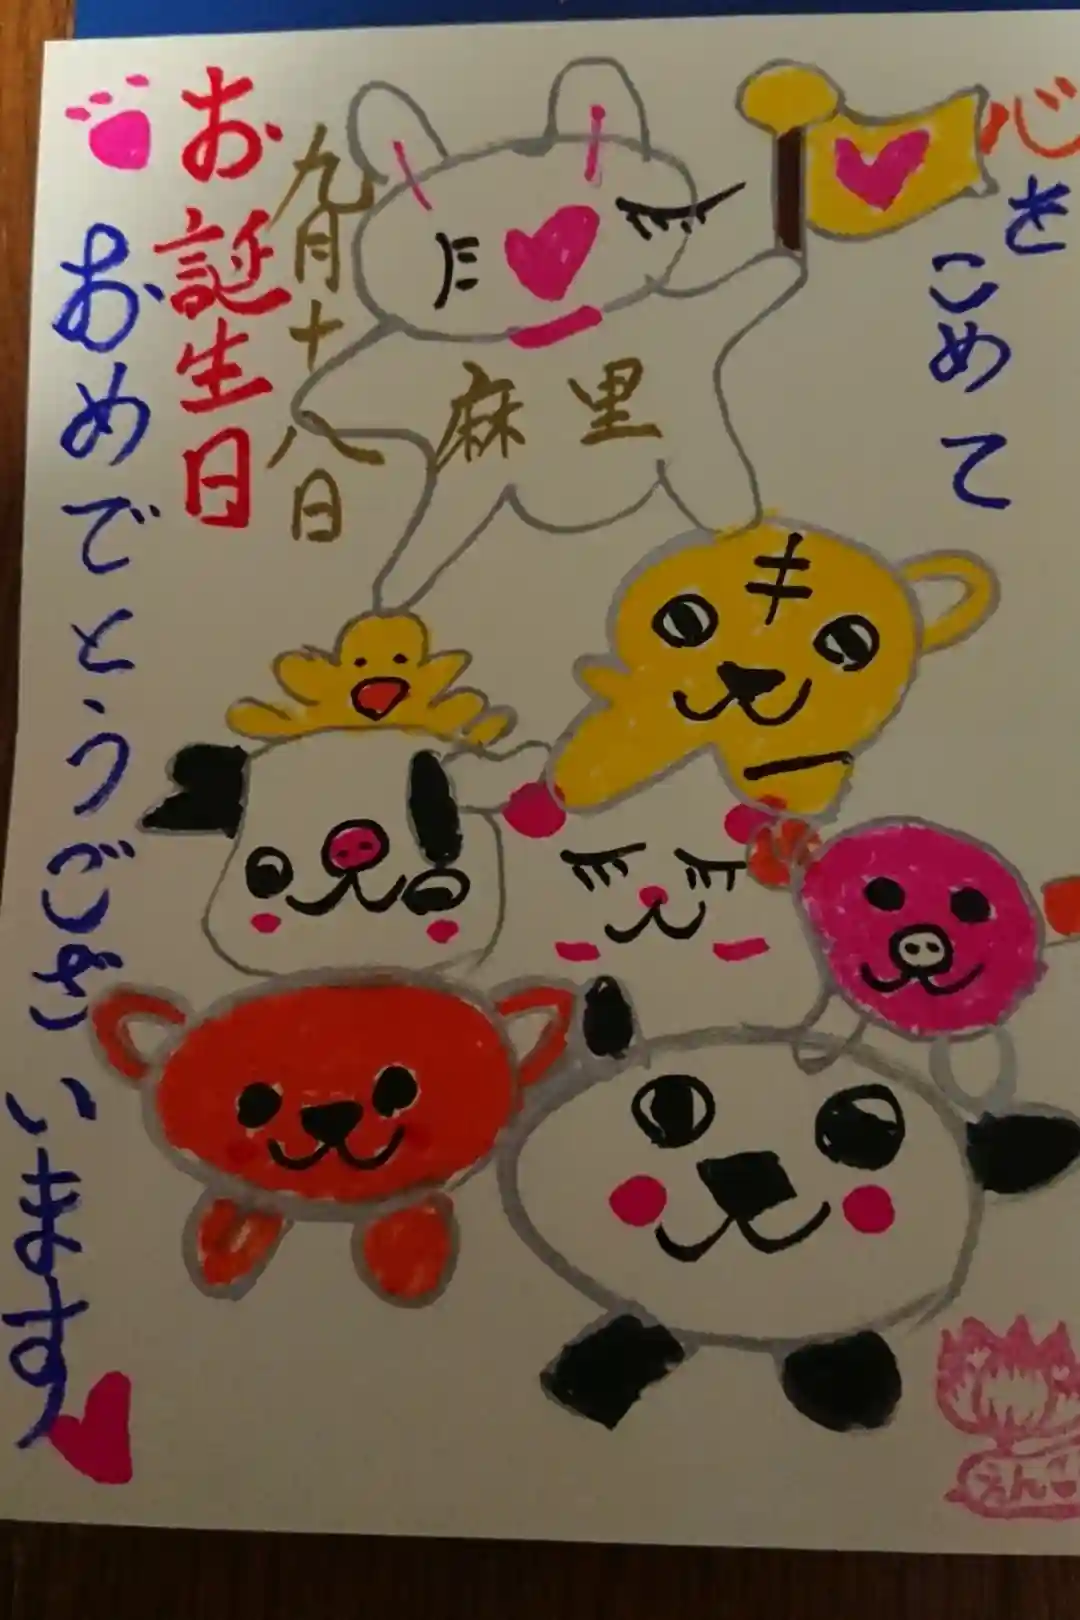 心をこめて
麻里
九月十八日
お誕生日
おめでとうございます